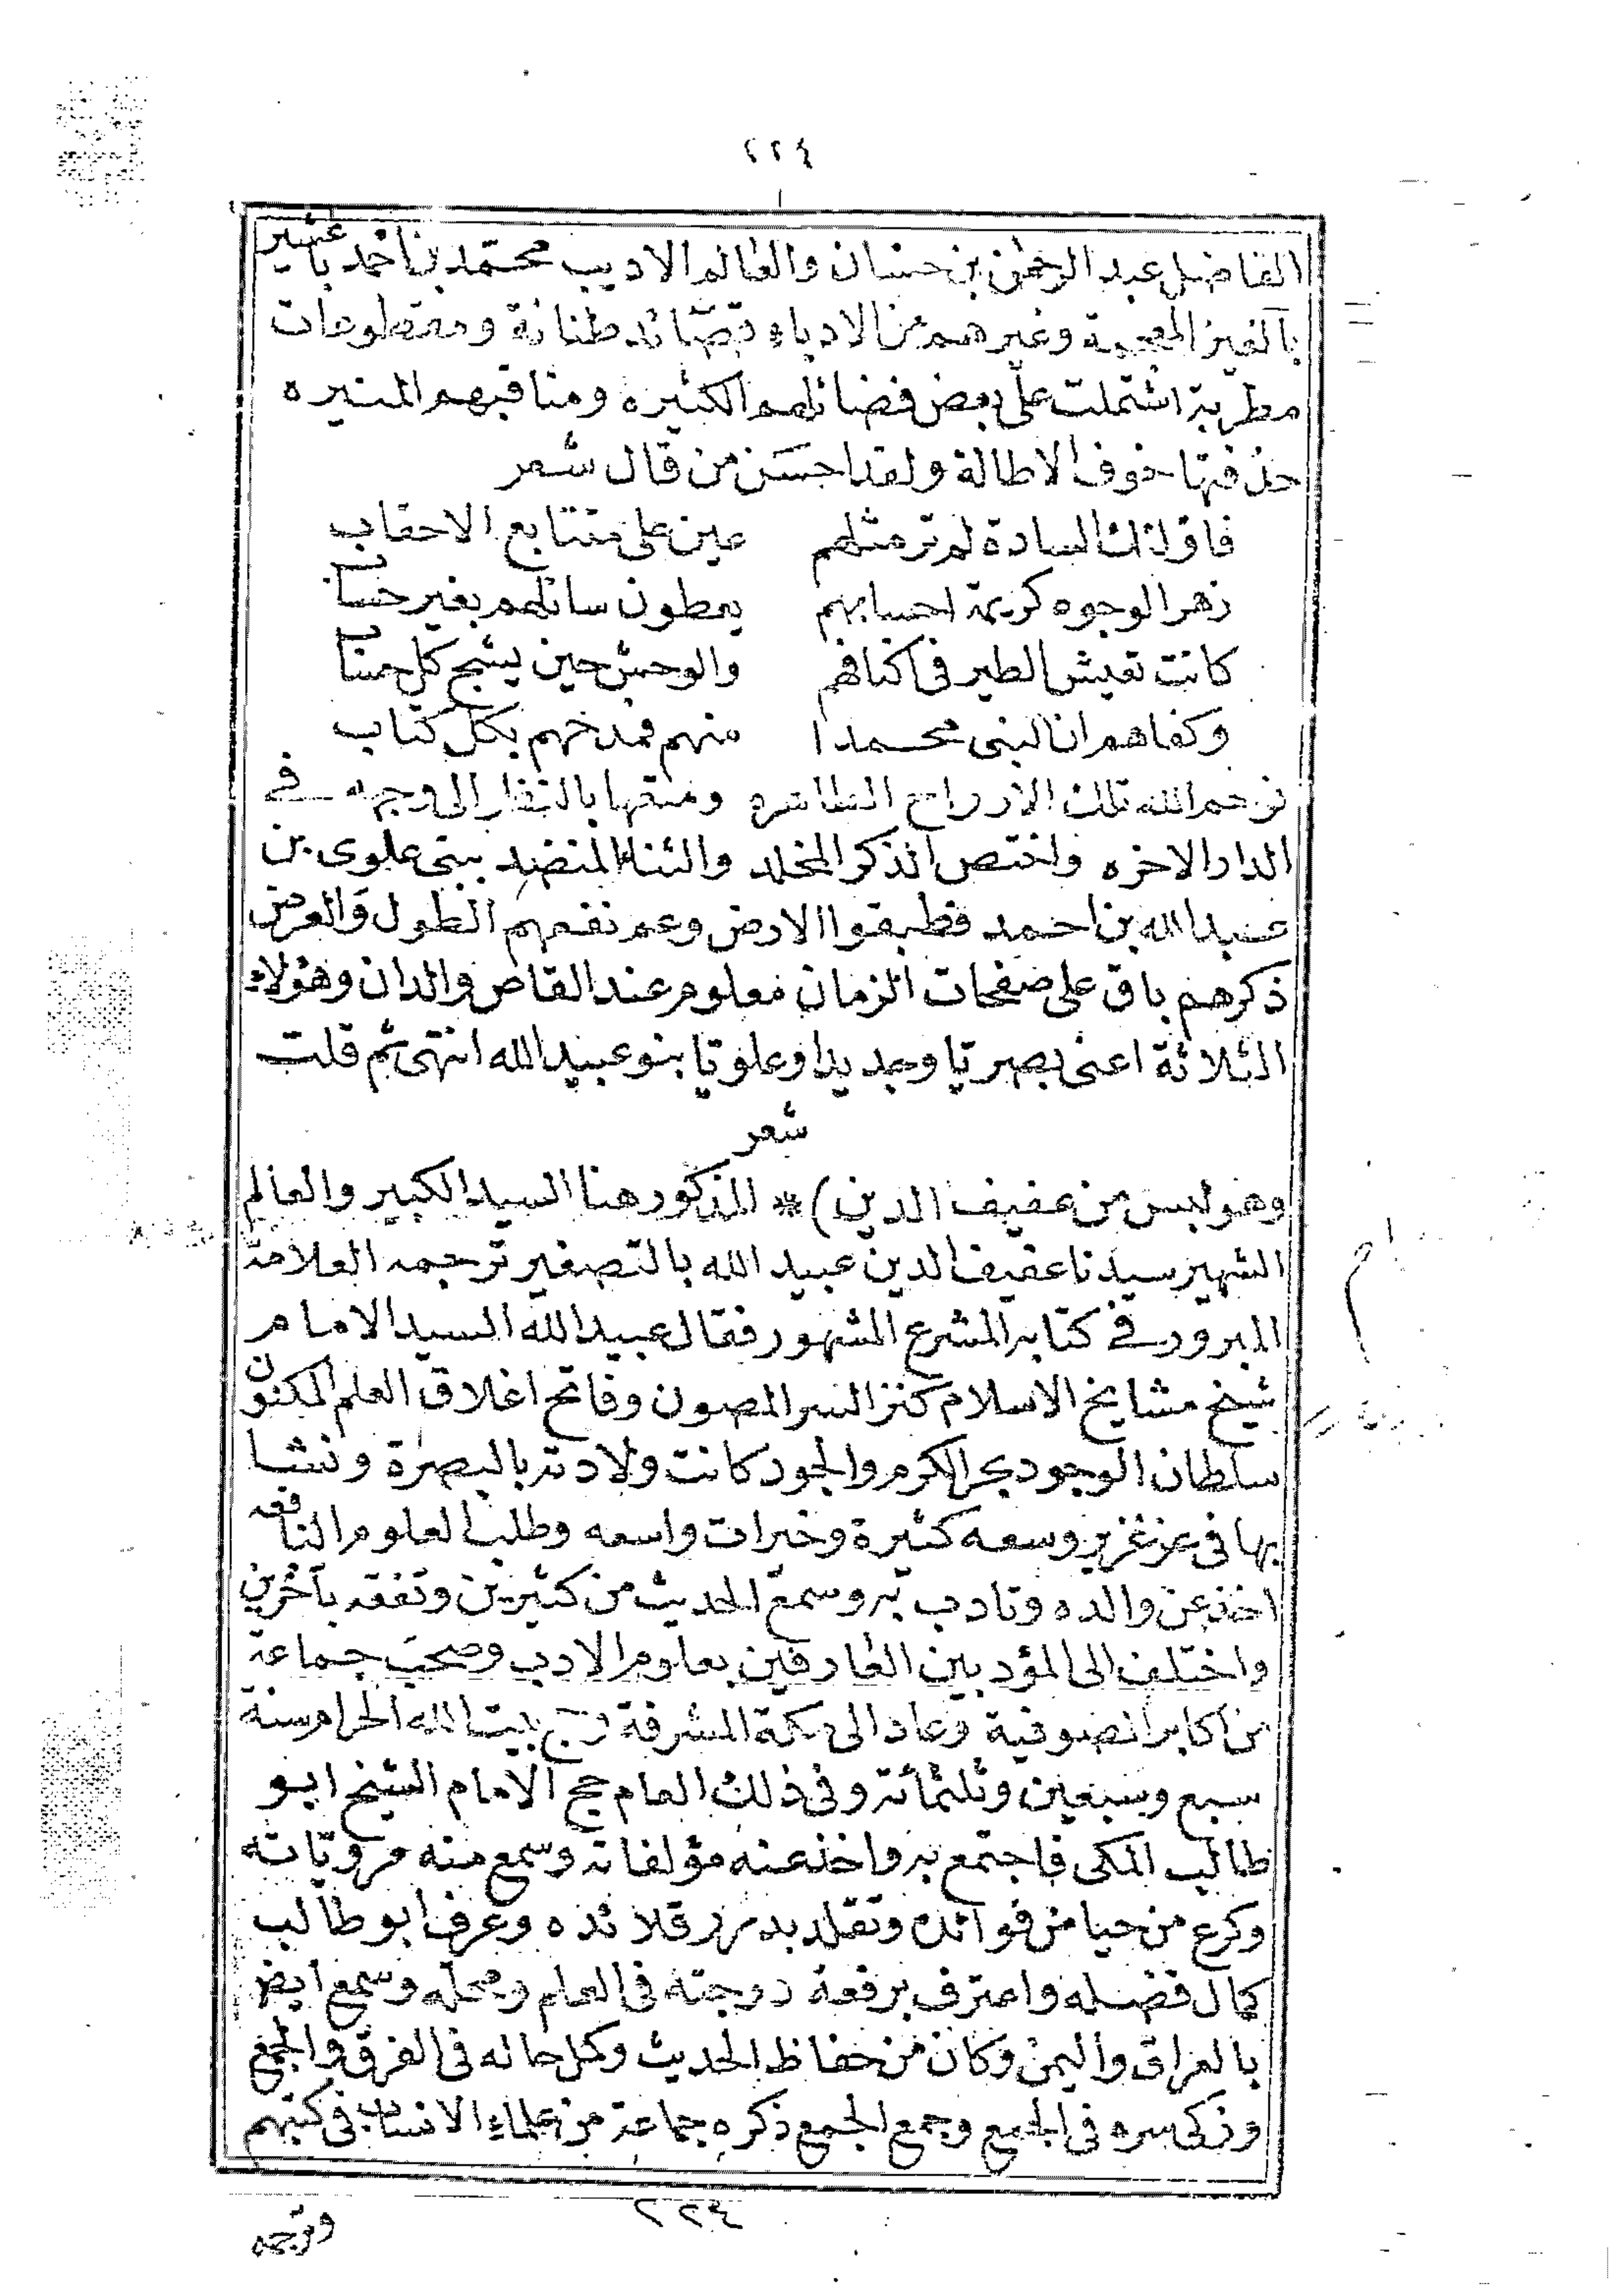 ٢٢٤
الفاضل عبد الرحمن بن حسان والعالم الاديب محمد بن احمد باغشير
بالغين المعجمة وغيرهم من الادباء قصائد طنانة ومقطوعات
مطربة اشتملت على بعض فضائلهم الكثيره ومناقبهم المنيره
حذفتها خوف الاطالة ولقد احسن من قال شعر
فاولئك السادة لم تر مثلهم عين على متتابع الاحقاب
زهر الوجوه كريمة احسابهم يعطون سائلهم بغير حساب
كانت تعيش الطير في اكنافهم والوحش حين يشح كل جناب
وكفاهم ان النبي محمدا منهم فمدحهم بكل كتاب
فرحم الله تلك الارواح الطاهره ومتعها بالنظر الى وجهه في
الدار الاخره واختص الذكر المخلد والثناء المنضد ببني علوى بن
عبيد الله بن احمد فطبقوا الارض وعم نفعهم الطول والعرض
ذكرهم باق على صفحات الزمان معلوم عند القاص والدان وهؤلاء
الثلاثة اعنى بصريا وجديدا وعلويا بنو عبيد الله انتهى ثم قلت
شعر
وهو لبس من عفيف الدين) * المذكور هنا السيد الكبير والعالم
الشهير سيدنا عفيف الدين عبيد الله بالتصغير ترجمه العلامة
المبرور في كتابه المشرع المشهور فقال عبيد الله السيد الامام
شيخ مشايخ الاسلام كنز السر المصون وفاتح اغلاق العلم المكنون
سلطان الوجود بحر الكرم والجود كانت ولادته بالبصرة ونشا
بها في عز غزير وسعه كثيرة وخيرات واسعه وطلب العلوم النافعه
اخذ عن والده وتادب به وسمع الحديث من كثيرين وتفقه بآخرين
واختلف الى المؤدبين العارفين بعلوم الادب وصحب جماعة
من اكابر الصوفية وعاد الى مكة المشرفة وحج بيت الله الحرام سنة
سبع وسبعين وثلثمائة وفي ذلك العام حج الامام الشيخ ابو
طالب المكى فاجتمع به واخذ عنه مؤلفاته وسمع منه مروياته
وكرع من حيا من فوائده وتقلد بدرر قلائده وعرف ابو طالب
كمال فضله واعترف برفعة درجته في العلم ومحله وسمع ايض
بالعراق واليمن وكان من حفاظ الحديث وكمل حاله في الفرق والجمع
وزكى سره في الجمع وجمع الجمع ذكره جماعة من علماء الانساب في كتبهم
٢٢٤
وترجمه